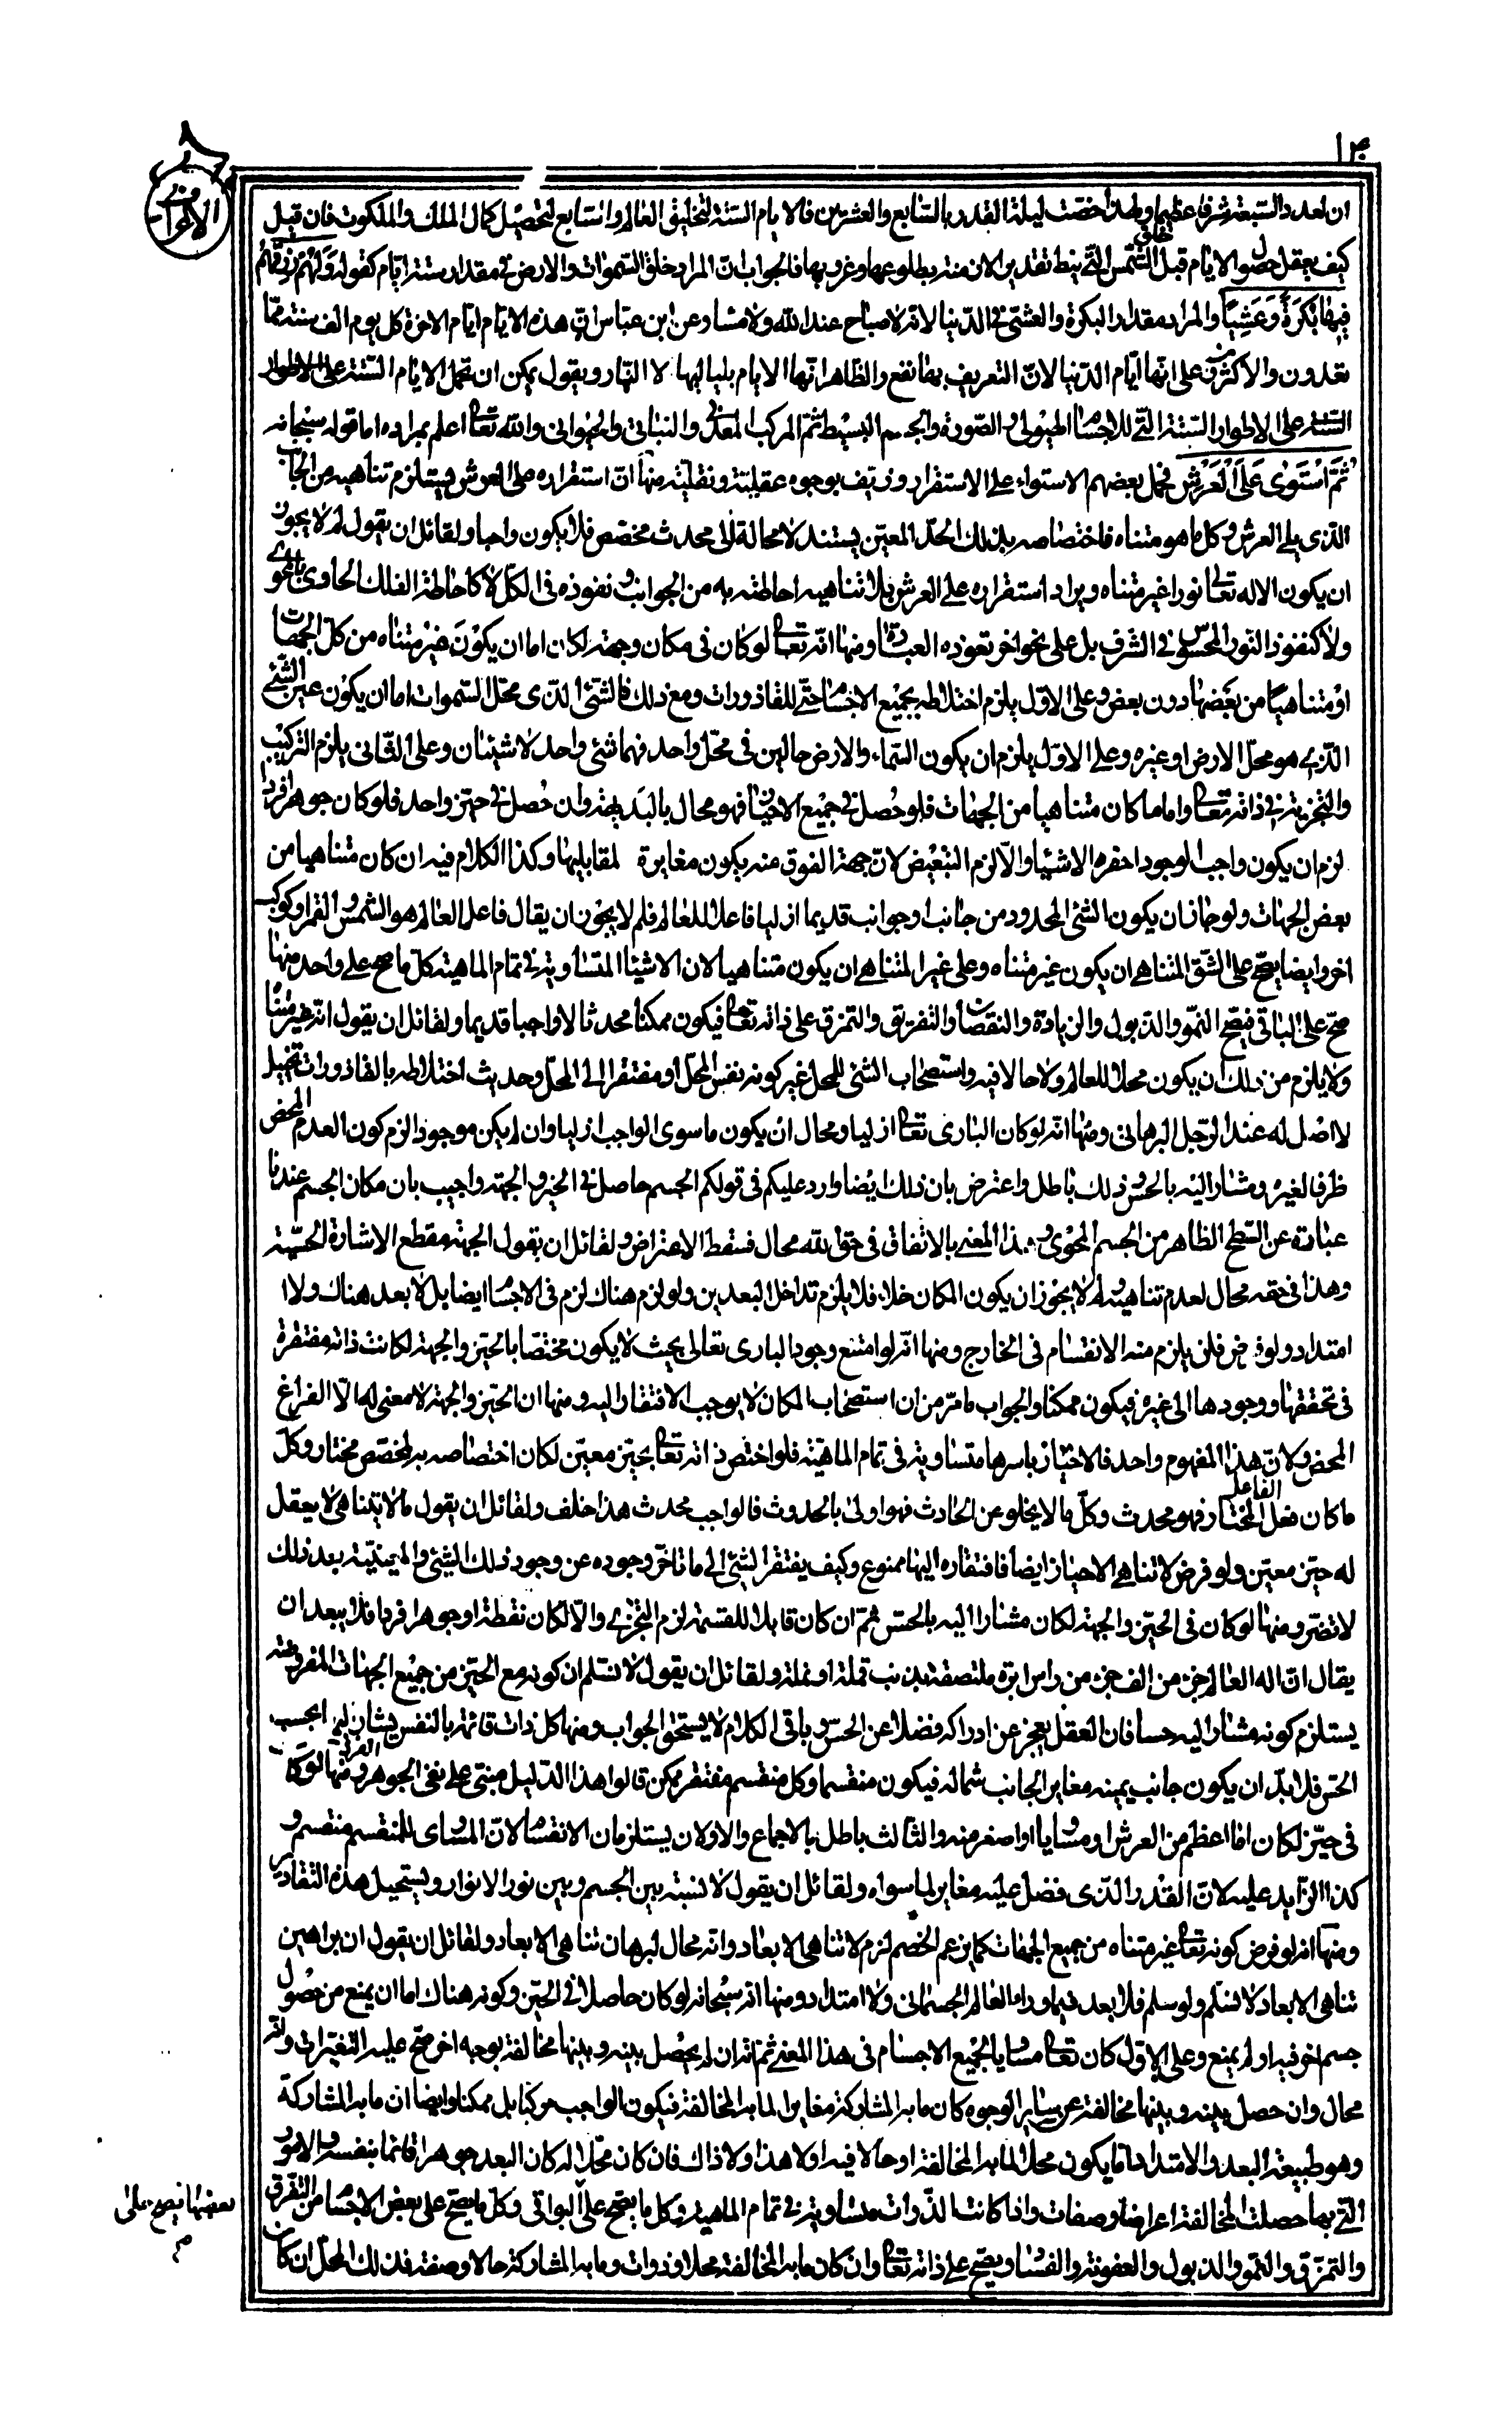 ١٣
من الاعراف
ان لعدد السبعة شرفا عظيما ولهذا خصت ليلة القدر بالسابع والعشرين فالايام الستة لتخليق العالم والسابع لتحصيل كمال الملك والملكوت فان قيل
كيف يعقل حصول الايام قبل خلق الشمس التي ينط تقدير الازمنة بطلوعها وغروبها فالجواب ان المراد خلق السموات والارض في مقدار ستة ايام كقوله وَلَهُمْ رِزْقُهُمْ
فِيهَا بُكْرَةً وَعَشِيًّا والمراد مقدار البكرة والعشي في الدنيا لانه لا صباح عند الله ولا مساء وعن ابن عباس ان هذه الايام ايام الاخرة كل يوم الف سنة مما
تعدون والاكثرون على انها ايام الدنيا لان التعريف بها نفع والظاهر انها الايام بلياليها لا النهار ويقول يمكن ان تحمل الايام الستة على الاطوار
الستة على الاطوار الستة التي للاجسام الهيولى والصورة والجسم البسيط ثم المركب المعدني والنباتي والحيواني والله تعالى اعلم بمراده اما قوله سبحانه
ثُمَّ اسْتَوَى عَلَى الْعَرْشِ فحمل بعضهم الاستواء على الاستقرار وزيف بوجوه عقلية ونقلية منها ان استقراره على العرش يستلزم تناهيه من الجانب
الذي يلي العرش وكل ما هو متناه فاختصاصه بذلك الحد المعين يستند لا محالة الى محدث مخصص فلا يكون واجبا ولقائل ان يقول لم لا يجوز
ان يكون الاله تعالى نورا غير متناه ويراد استقراره على العرش بلا تناهيه احاطته به من الجوانب ونفوذه في الكل لا كاحاطة الفلك الحاوي بالمحوي
ولا كنفوذ النور المحسوس في الشف بل على نحو اخر تعوزه العبارة ومنها انه تعالى لو كان في مكان وجهة لكان اما ان يكون غير متناه من كل الجهات
او متناهيا من بعضها دون بعض وعلى الاول يلزم اختلاطه بجميع الاجسام حتى للقاذورات ومع ذلك فالشئ الذي محل السموات اما ان يكون عين الشئ
الذي هو محل الارض او غيره وعلى الاول يلزم ان يكون السماء والارض حالين في محل واحد فهما شئ واحد لا شيئان وعلى الثاني يلزم التركيب
والتجزية في ذاته تعالى واما ما كان متناهيا من الجهات فلو حصل في جميع الاحياز فهو محال بالبديهة وان حصل في حيز واحد فلو كان جوهرا فردا
لزم ان يكون واجب الوجود احقر الاشياء والا لزم التبعيض لان جهة الفوق منه يكون مغايرة لمقابليها وكذا الكلام فيه ان كان متناهيا من
بعض الجهات ولو جاز ان يكون الشئ المحدود من جانب او جوانب قديما ازليا فاعلا للعالم فلم لا يجوز ان يقال فاعل العالم هو الشمس او القمر او كوكب
اخر وايضا يصح على الشق المتناهي ان يكون غير متناه وعلى غير المتناهي ان يكون متناهيا لان الاشياء المتساوية في تمام الماهية كل ما صح على واحد منها
صح على الباقي فيصح النمو والذبول والزيادة والنقصان والتفريق والتمزق على ذاته تعالى فيكون ممكنا محدثا لا واجبا قديما ولقائل ان يقول انه غير متناه
ولا يلزم من ذلك ان يكون محلا للعالم ولا حالا فيه واستصحاب الشئ للمحل غير كونه نفس المحل او مفتقرا الى المحل وحديث اختلاطه بالقاذورات تخييل
لا اصل له عند الرجل البرهاني ومنها انه لو كان الباري تعالى ازليا ومحال ان يكون ما سوى الواجب ازليا وان لم يكن موجودا لزم كون العدم المحض
ظرفا لغيره ومشارا اليه بالحس وذلك باطل واعترض بان ذلك ايضا وارد عليكم في قولكم الجسم حاصل في الحيز والجهة واجيب بان مكان الجسم عندنا
عبارة عن السطح الظاهر من الجسم المحوي وهذا المعنى بالاتفاق في حق الله محال فسقط الاعتراض ولقائل ان يقول الجهة مقطع الاشارة الحسية
وهذا في حقه محال لعدم تناهيه ولم لا يجوز ان يكون المكان خلاء فلا يلزم تداخل البعدين ولو لزم هناك لزم في الاجسام ايضا بل لا بعد هناك ولا ا
امتداد ولو فرض فلن يلزم منه الانقسام في الخارج ومنها انه لو امتنع وجود الباري تعالى بحيث لا يكون مختصا بالحيز والجهة لكانت ذاته مفتقرة
في تحققها ووجودها الى غيره فيكون ممكنا والجواب ما مر من ان استصحاب المكان لا يوجب الافتقار اليه ومنها ان الحيز والجهة لا معنى لها الا الفراغ
المحض ولان هذا المفهوم واحد فالاحياز باسرها متساوية في تمام الماهية فلو اختص ذاته تعالى بحيز معين لكان اختصاصه به لمخصص مختار وكل
ما كان فعل الفاعل المختار فهو محدث وكل ما لا يخلو عن الحادث فهو اولى بالحدوث فالواجب محدث هذا خلف ولقائل ان يقول ما لا يتناهى لا يعقل
له حيز معين ولو فرض لا تناهي الاحياز ايضا فافتقاره اليها ممنوع وكيف يفتقر الشئ الى ما تاخر وجوده عن وجود ذلك الشئ والمعية بعد ذلك
لا تضر ومنها لو كان في الحيز والجهة لكان مشارا اليه بالحس ثم ان كان قابلا للقسمة لزم التجزي والا لكان نقطة او جوهرا فردا فلا يبعد ان
يقال ان اله العالم جزء من الف جزء من راس ابرة ملتصقة بذنب قملة او نملة ولقائل ان يقول لا نسلم ان كونه مع الحيز من جميع الجهات المفروضة
يستلزم كونه مشارا اليه حسا فان العقل يعجز عن ادراكه فضلا عن الحس وباقي الكلام لا يستحق الجواب ومنها كل ذات قائمة بالنفس يشار اليها بحسب
الحس فلا بد ان يكون جانب يمينه مغاير الجانب شماله فيكون منقسما وكل منقسم مفتقر ممكن قالوا هذا الدليل مبني على نفي الجوهر الفرد ومنها لو كان
في حيز لكان اما اعظم من العرش او مساويا او اصغر منه والثالث باطل بالاجماع والاولان يستلزمان الانقسام لان المساوي للمنقسم منقسم و
كذا الزايد عليه لان القدر الذي فضل عليه مغاير لما سواه ولقائل ان يقول لا نسبة بين الجسم وبين نور الانوار ويستحيل هذه التقادير
ومنها انه لو فرض كونه تعالى غير متناه من جميع الجهات كما يزعم الخصم لزم لا تناهي الابعاد وانه محال لبرهان تناهي الابعاد ولقائل ان يقول ان براهين
تناهي الابعاد لا نسلم ولو سلم فلا بعد فيما وراء العالم الجسماني ولا امتداد ومنها انه سبحانه لو كان حاصلا في الحيز وكونه هناك اما ان يمنع من حصول
جسم اخر فيه او لم يمنع وعلى الاول كان تعالى مساويا لجميع الاجسام في هذا المعنى ثم انه ان لم يحصل بينه وبينها مخالفة بوجه اخر صح عليه التغيرات وانه
محال وان حصل بينه وبينها مخالفة من ساير الوجوه كان ما به المشاركة مغايرا لما به المخالفة فيكون الواجب مركبا بل ممكنا وايضا ان ما به المشاركة
وهو طبيعة البعد والامتداد اما يكون محلا لما به المخالفة او حالا فيه او لا هذا ولا ذاك فان كان محلا له كان البعد جوهرا قائما بنفسه والامور
التي بها حصلت المخالفة اعراضا وصفات واذا كانت الذوات متساوية في تمام الماهية وكل ما يصح على البواقي وكل ما يصح على بعض الاجسام من التفرق
والتمزق والنمو والذبول والعفونة والفساد ويصح على ذاته تعالى وان كان ما به المخالفة محلا وذوات وما به المشاركة حالا وصفة فذلك المحل ان كان
بعضها يصح على
م